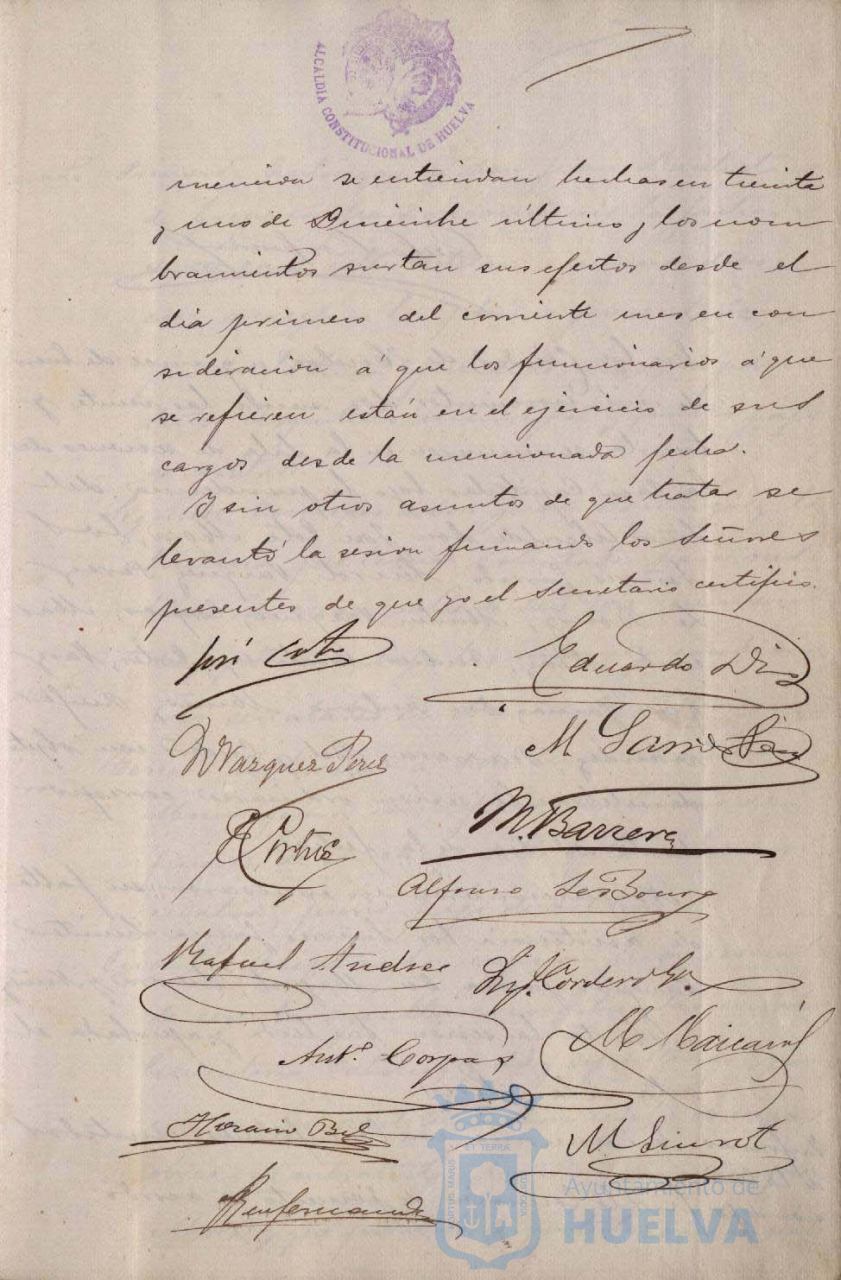 ALCALDIA CONSTITUCIONAL DE HUELVA
mencion se entiendan hechas en treinta
y uno de Diciembre último y los nom
bramientos surtan sus efectos desde el
dia primero del corriente mes en con
sideracion á que los funcionarios á que
se refieren están en el ejercicio de sus
cargos desde la mencionada fecha.
Y sin otros asuntos de que tratar se
levantó la sesion firmando los Señores
presentes de que yo el Secretario certifico.
José
Eduardo Diaz
Vazquez Perez
M
M. Barrera
Alfonso
Rafael Andree
Cordero
Antº Corpas
M
Horacio Bel
M Siurot
ET TERRAE
PORTUS MARIS
CUSTODIA
Ayuntamiento de
HUELVA